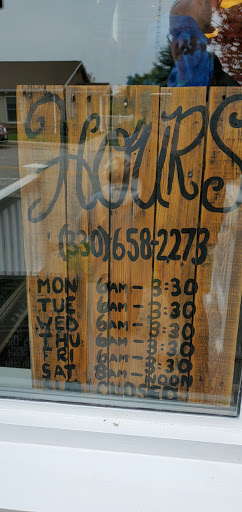 HOURS
(330)658-2273
MON 6AM - 3:30
TUE 6AM - 3:30
WED 6AM - 3:30
THU 6AM - 3:30
FRI 6AM - 3:30
SAT 8AM - NOON
CLOSED